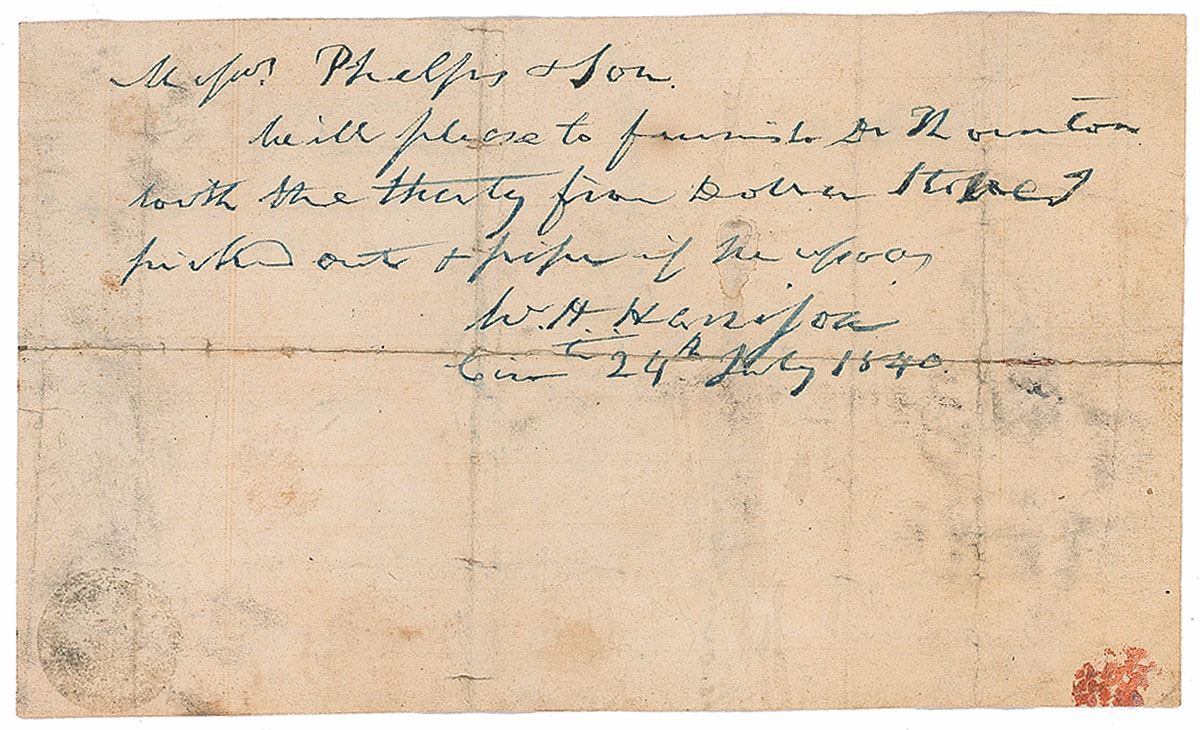 Messrs Phelps & Son.
will please to furnish Dr Thornton
with the thirty five Dollar Stove I
picked out & pipe if he
W. H. Harrison
Cin 24th July 1840.